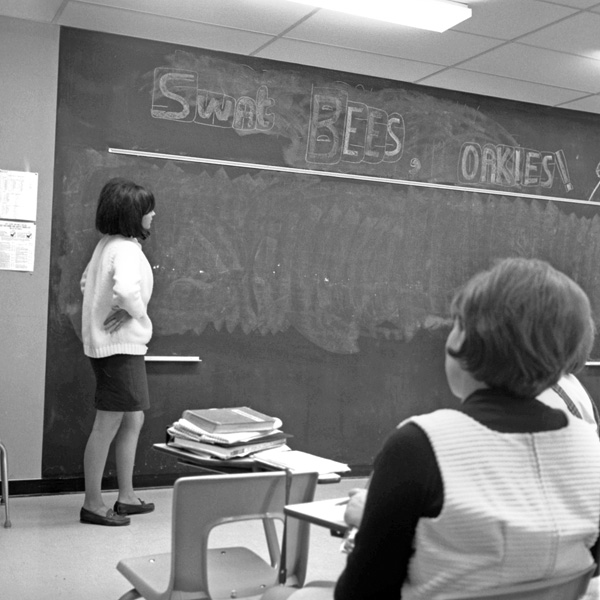 Swat BEES, OAKIES!